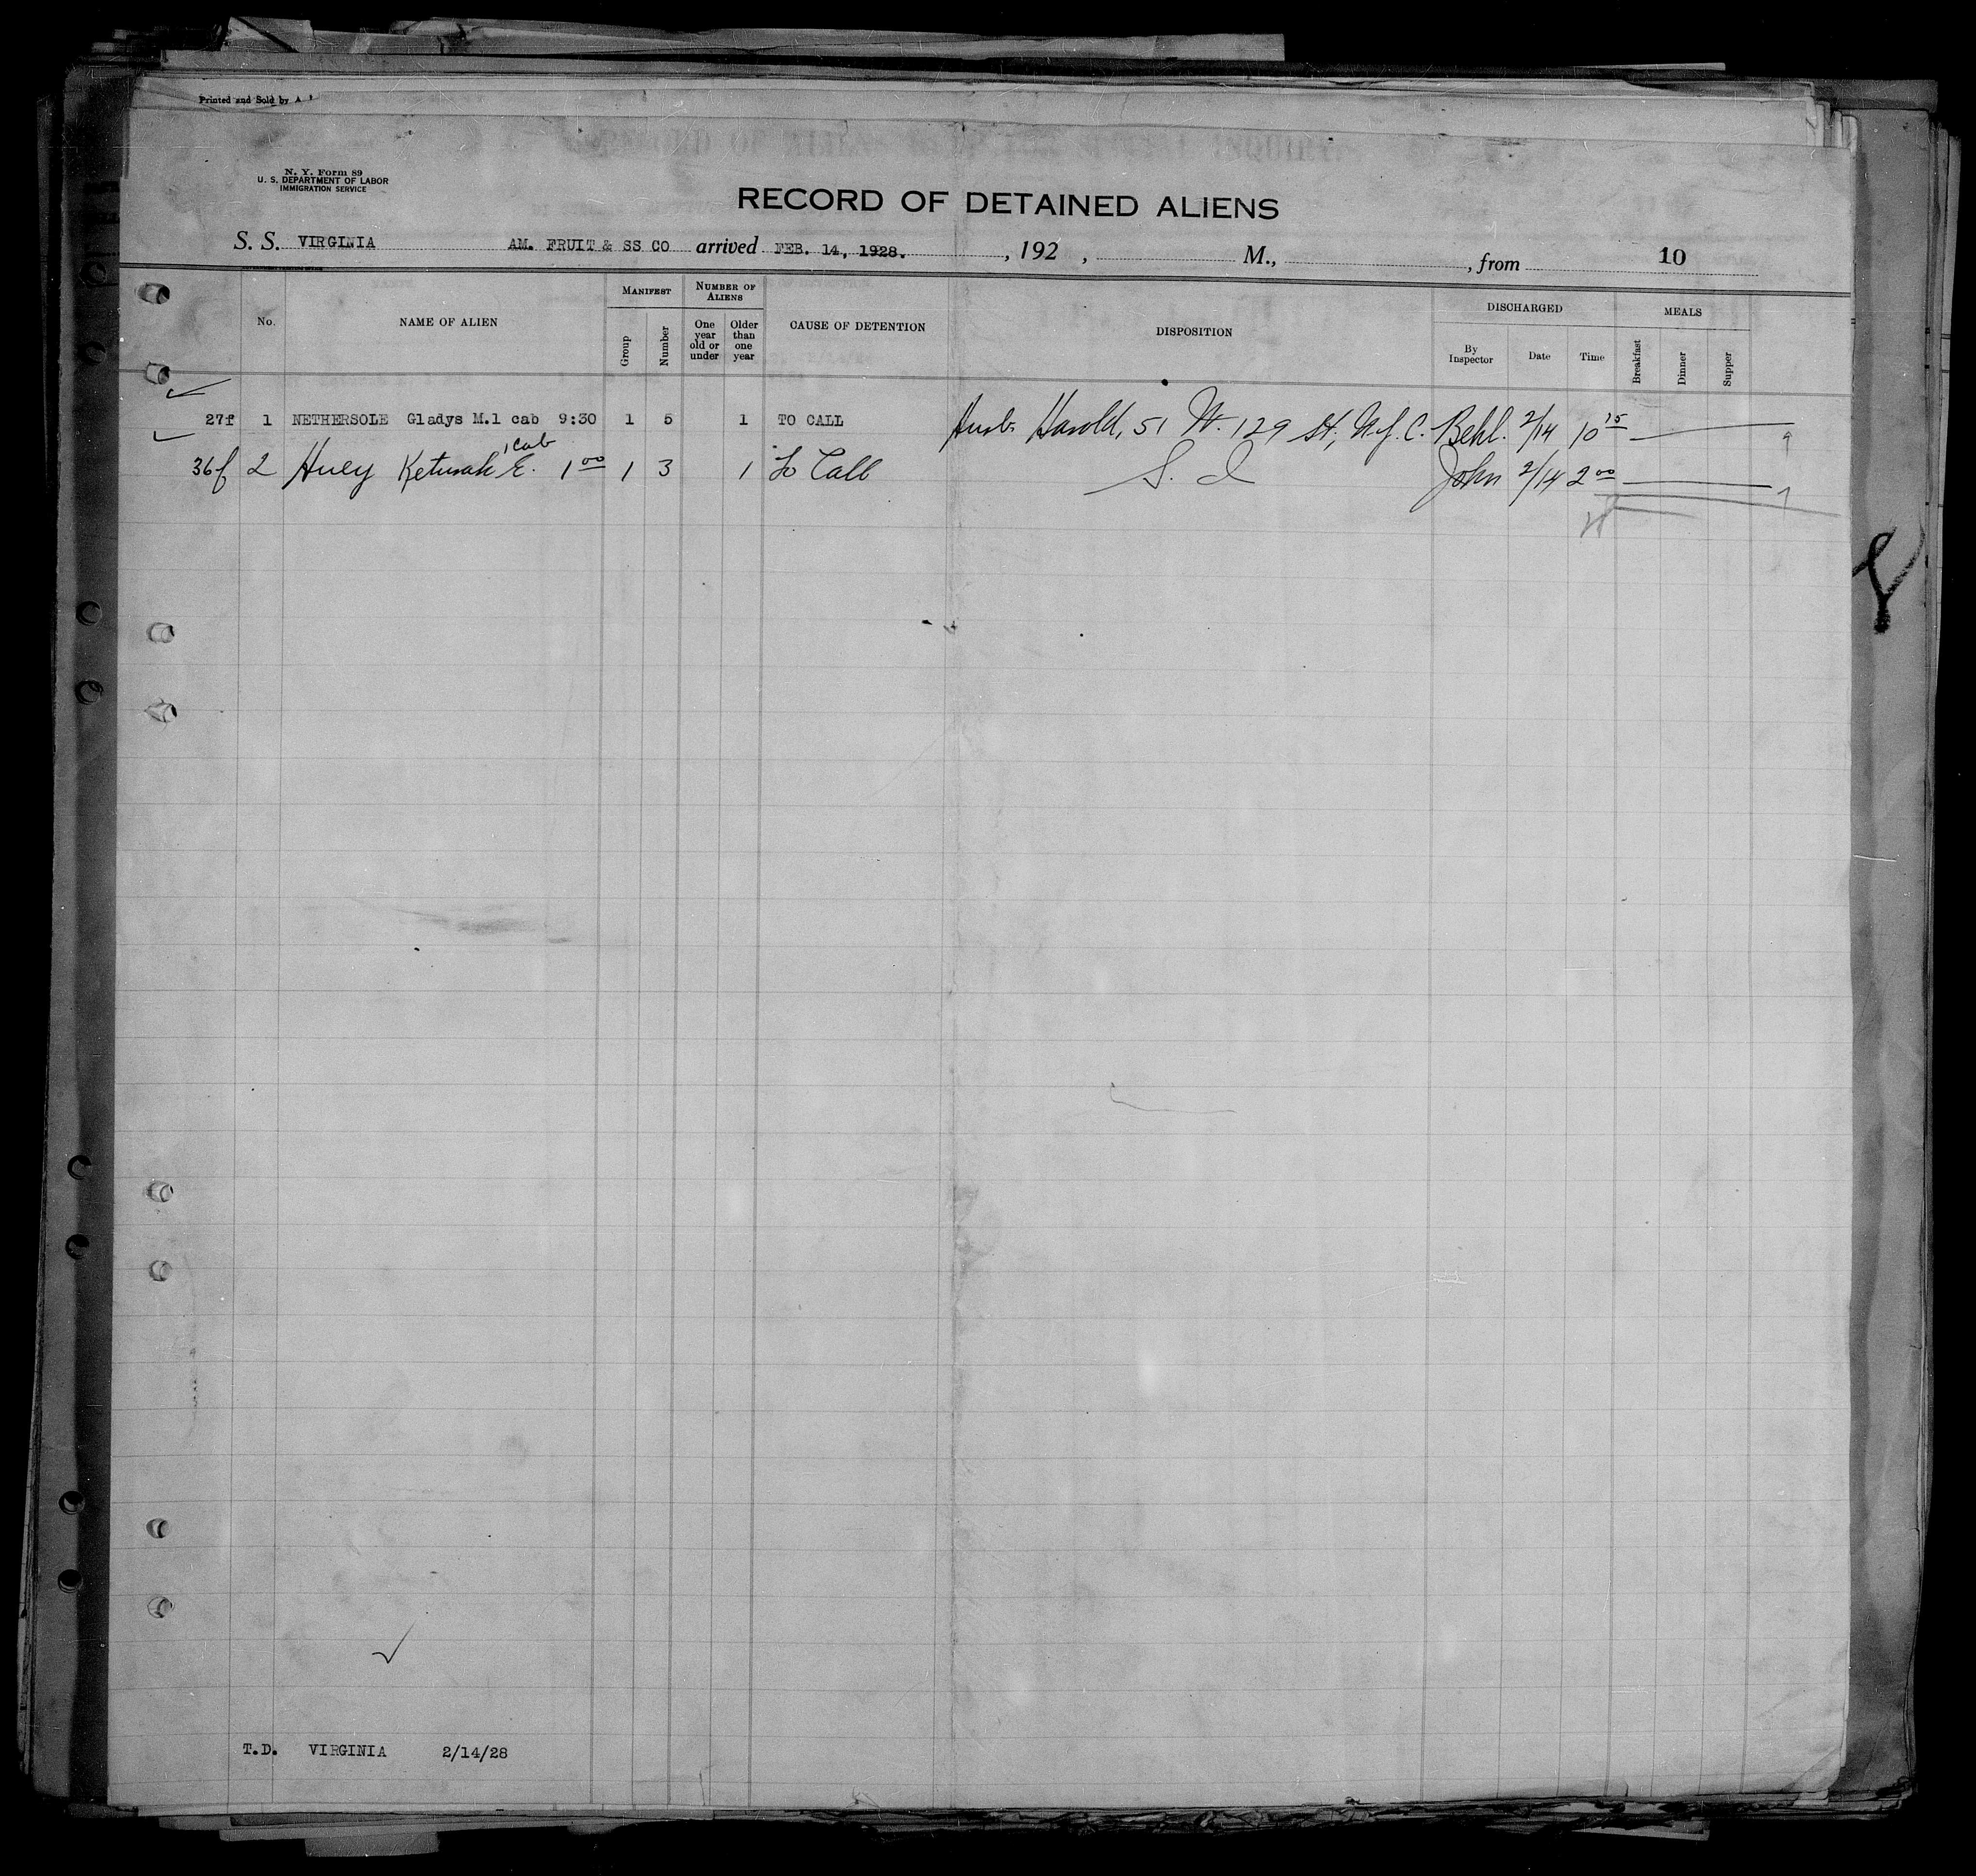 Printed and Sold by A
N. Y. Form 89
U. S. DEPARTMENT OF LABOR
IMMIGRATION SERVICE
RECORD OF DETAINED ALIENS
S. S. VIRGINIA AM. FRUIT & SS CO arrived FEB. 14, 1928. , 192 , M., , from 10
No. NAME OF ALIEN MANIFEST Group Number NUMBER OF ALIENS One year old or under Older than one year CAUSE OF DETENTION DISPOSITION DISCHARGED By Inspector Date Time MEALS Breakfast Dinner Supper
27f 1 NETHERSOLE Gladys M.1 cab 9:30 1 5 1 TO CALL Husb. Harold, 51 W. 129 St, N.Y.C. Behl. 2/14 10 15
1 cab
36f 2 Huey Keturah E. 1 00 1 3 1 To Call S. I John 2/14 2 00
T.D. VIRGINIA 2/14/28